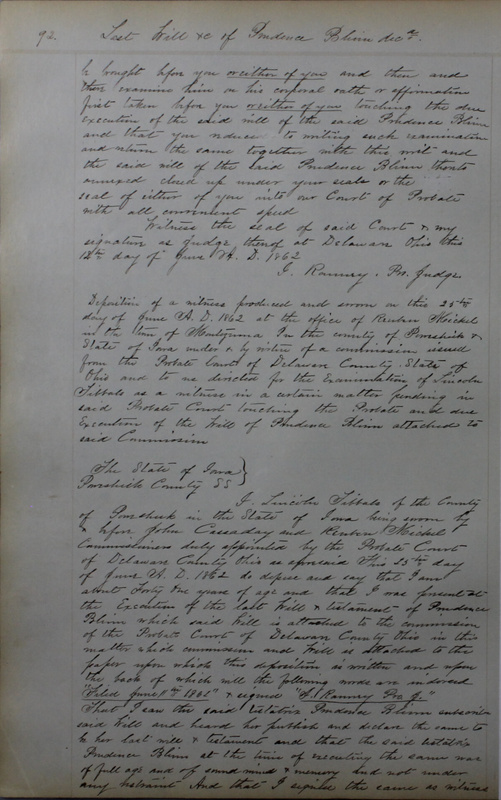 92. Last Will &c of Prudence Blinn decd.
be brought before you or either of you and then and
there examine him on his corporal oath or affirmation
first taken before you or either of you touching the due
execution of the said will of the said Prudence Blinn
and that you reduce to writing such examination
and return the same together with this writ and
the said will of the said Prudence Blinn thereto
annexed closed up under your seals or the
seal of either of you into our Court of Probate
with all convenient speed
Witness the seal of said Court & my
signature as Judge thereof at Delaware Ohio this
12th day of June A. D. 1862
T. Ranney. Pro. Judge
Deposition of a witness produced and sworn on this 25th
day of June A. D. 1862 at the office of Reuben Mickel
in the town of Montezuma In the county of Poweshiek &
State of Iowa under & by virtue of a commission issued
from the Probate Court of Delaware County State of
Ohio and to us directed for the Examination of Lincoln
Tibbals as a witness in a certain matter pending in
said Probate Court touching the Probate and due
Execution of the Will of Prudence Blinn attached to
said Commission
The State of Iowa
Poweshiek County SS
I. Lincoln Tibbals of the County
of Poweshiek in the State of Iowa being sworn by
& before John Cassaday and Reuben Mickel
Commissioners duly appointed by the Probate Court
of Delaware County Ohio as aforesaid this 25th day
of June A. D. 1862 do depose and say that I am
about Forty One years of age and that I was present at
the Execution of the last Will & testament of Prudence
Blinn which said Will is attached to the commission
of the Probate Court of Delaware County Ohio in this
matter which commission and Will is attached to the
paper upon which this deposition is written and upon
the back of which will the following words are indorsed
"Filed June 11th 1862" & signed "T. Ranney Pro J."
That I saw the said testatrix Prudence Blinn subscribe
said Will and heard her publish and declare the same to
be her last will & testament and that the said testatrix
Prudence Blinn at the time of executing the same was
of full age and of sound mind & memory and not under
any restraint And that I signed the same as witness